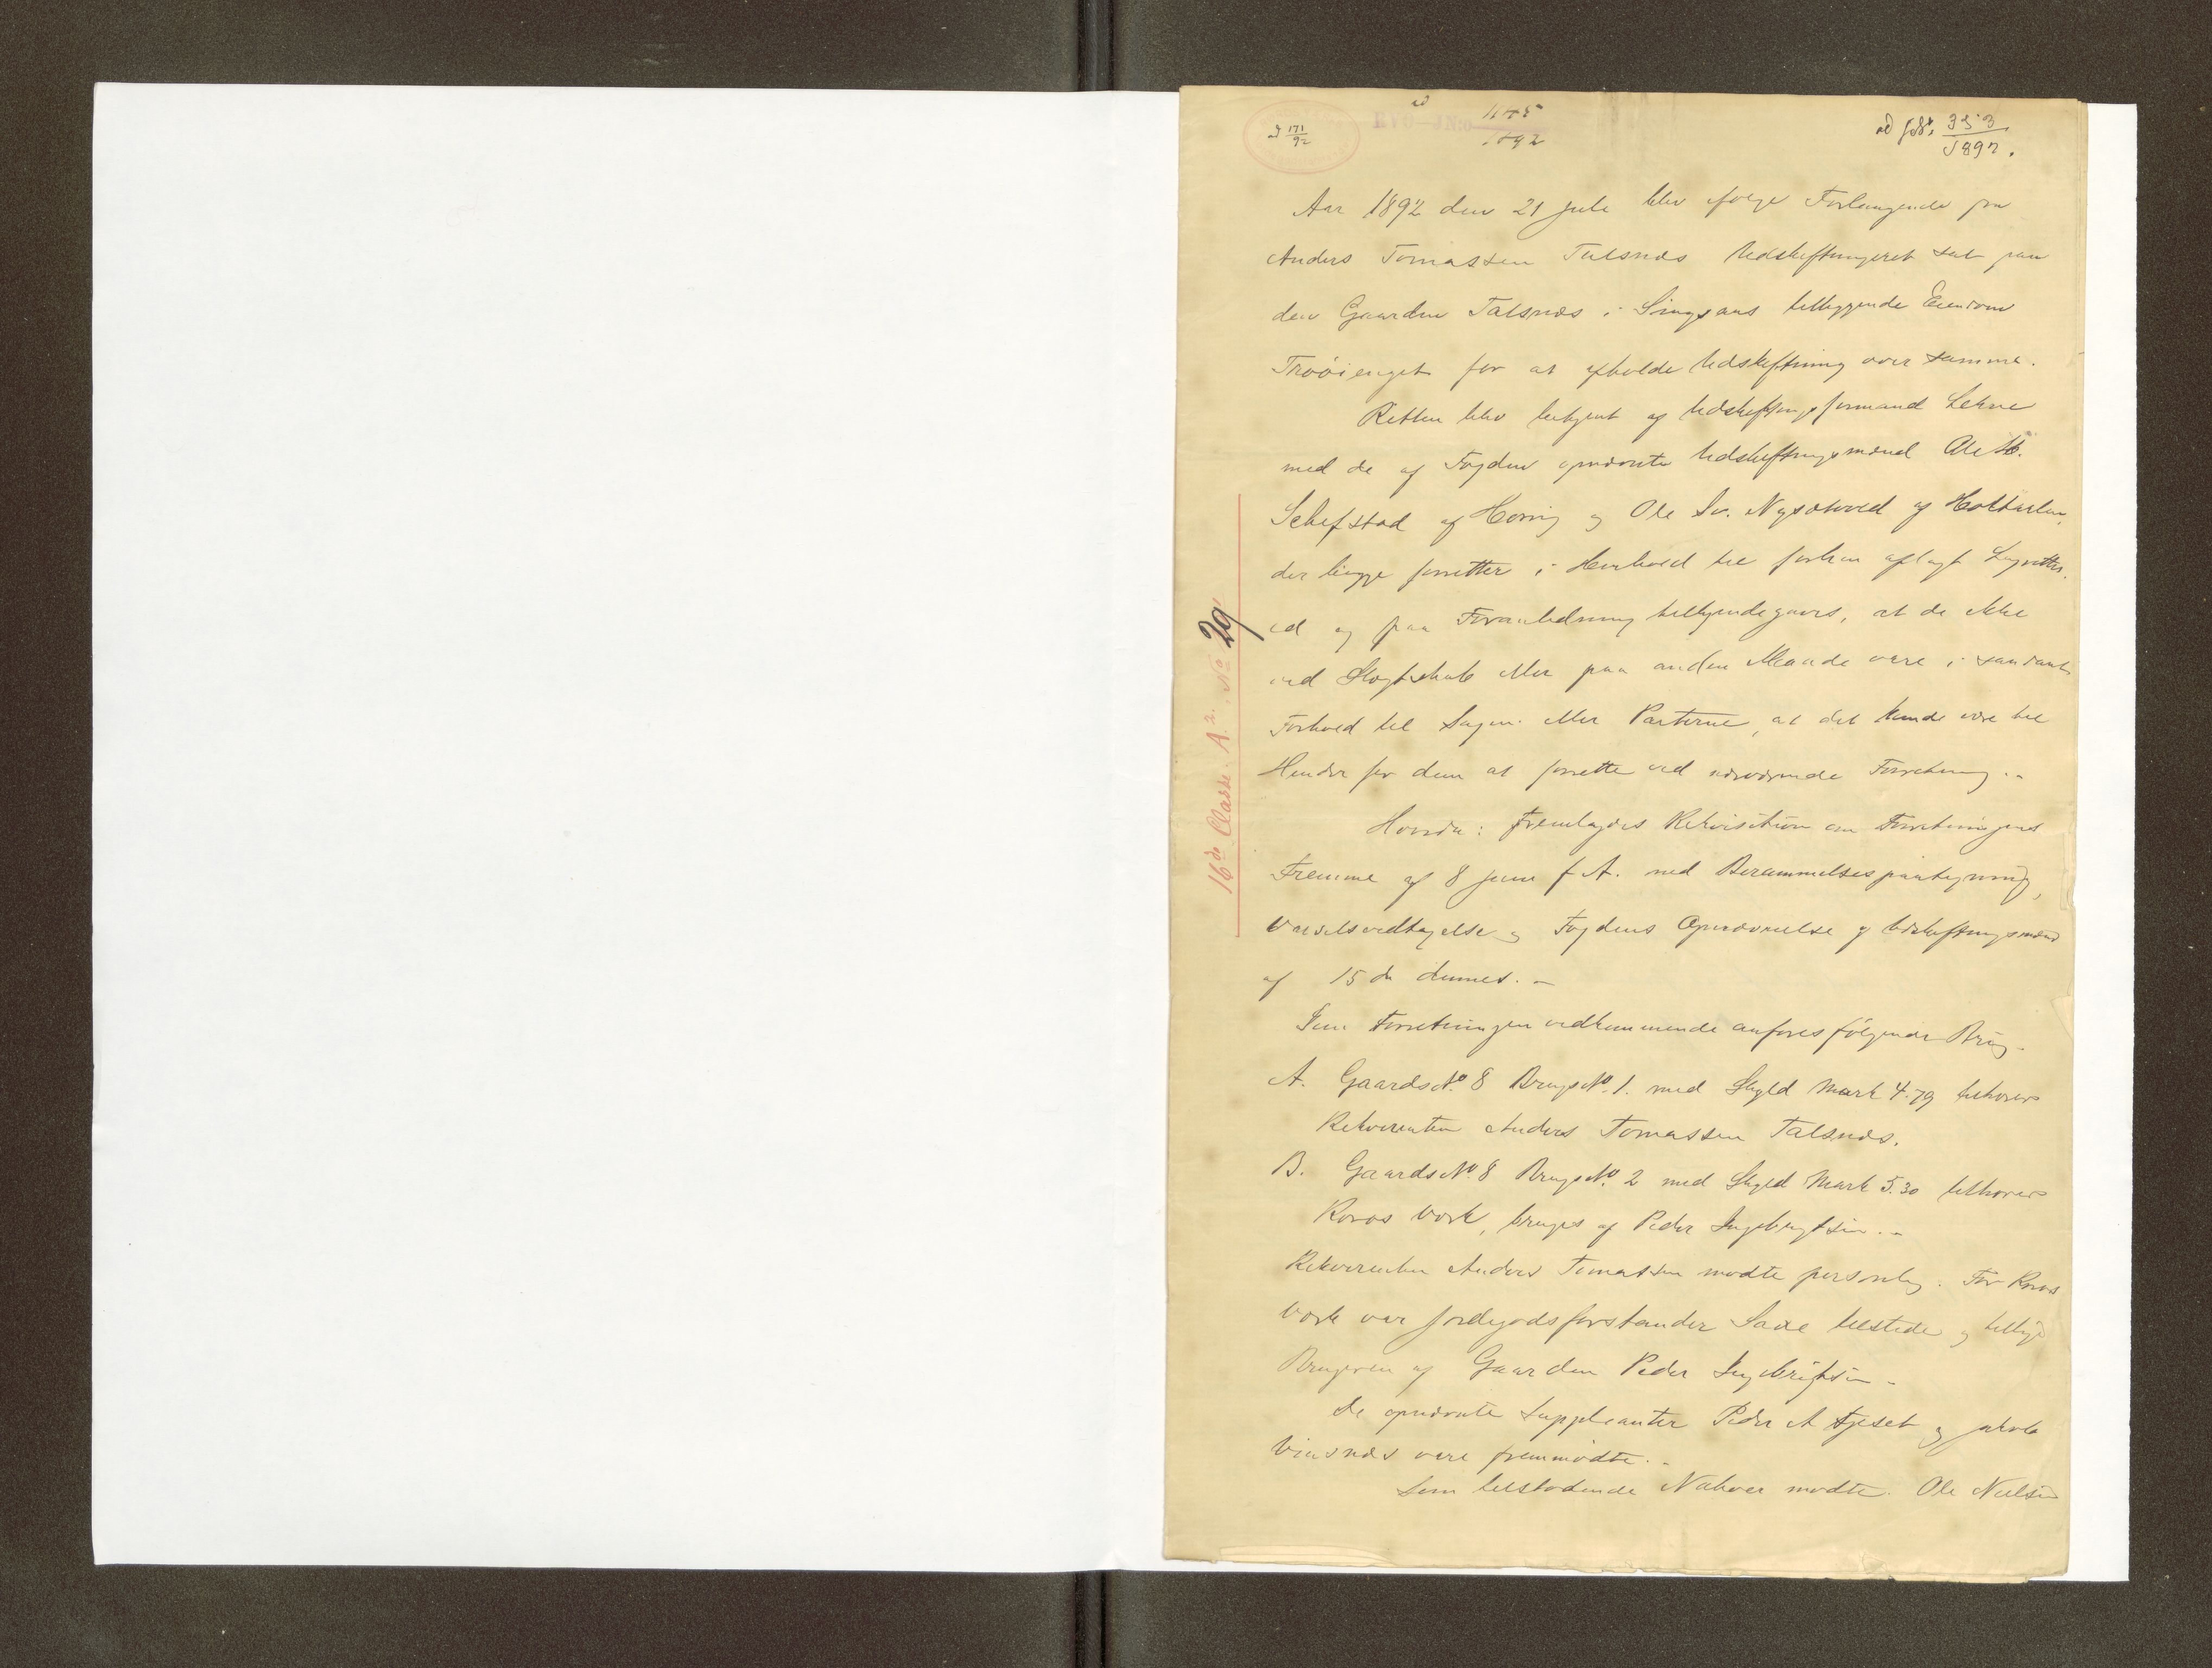 ad 171/92
ad
1892
ad 353/1892.
Aar 1892 den 21 Juli blev ifølge Forlangende fra
Anders Tomassen Talsnæs Udskiftningsret sat paa
den Gaarden Talsnæs i Singsaas tilliggende Eiendom
Trøøienget for at afholde Udskiftning over samme.
Retten blev betjent af Udskiftningsformand Lehne
med de af Fogden opnævnte Udskiftningsmænd Ole
af Horrig og Ole Sv. Nysætvold af Holtaalen,
der begge forretter i Henhold til forhen aflagt Lagrettes
ed og paa Foranledning tilkjendegaves, at de ikke
ved Slægtskab eller paa anden Maade vare i saadant
Forhold til Sagen eller Parterne, at det kunde være til
Hinder for dem at forrette ved nærværende Forretning. -
Hvorda: Fremlagdes Rekvisition om Forretningens
Fremme af 8 Juni f. A. med Berammelsespaategning,
Varselsvedtagelse og Fogdens Opnævnelse af Udskiftningsmænd
af 15 ds dennes. -
Som Forretningen vedkommende anføres følgende Brug.
A. Gaards No 8 Brugs No. 1. med Skyld Mark 4.79 tilhører
Rekvirenten Anders Tomassen Talsnæs.
B. Gaards No. 8 Brugs No. 2 med Skyld Mark 5.30 tilhører
Røros Værk, bruges af Peder Ingebrigtsen. -
Rekvirenten Anders Tomassen mødte personlig. For Røros
Værk var Jordegodsforstander Saxe tilstede og tillige
Brugeren af Gaarden Peder Ingebrigtsen -
De opnævnte Suppleanter Peder A Fjeset og Jakob
Vinsnæs vare fremmødte. -
Som tilstødende Naboer mødte. Ole Nielsen
16de Classe. A.2. No 29